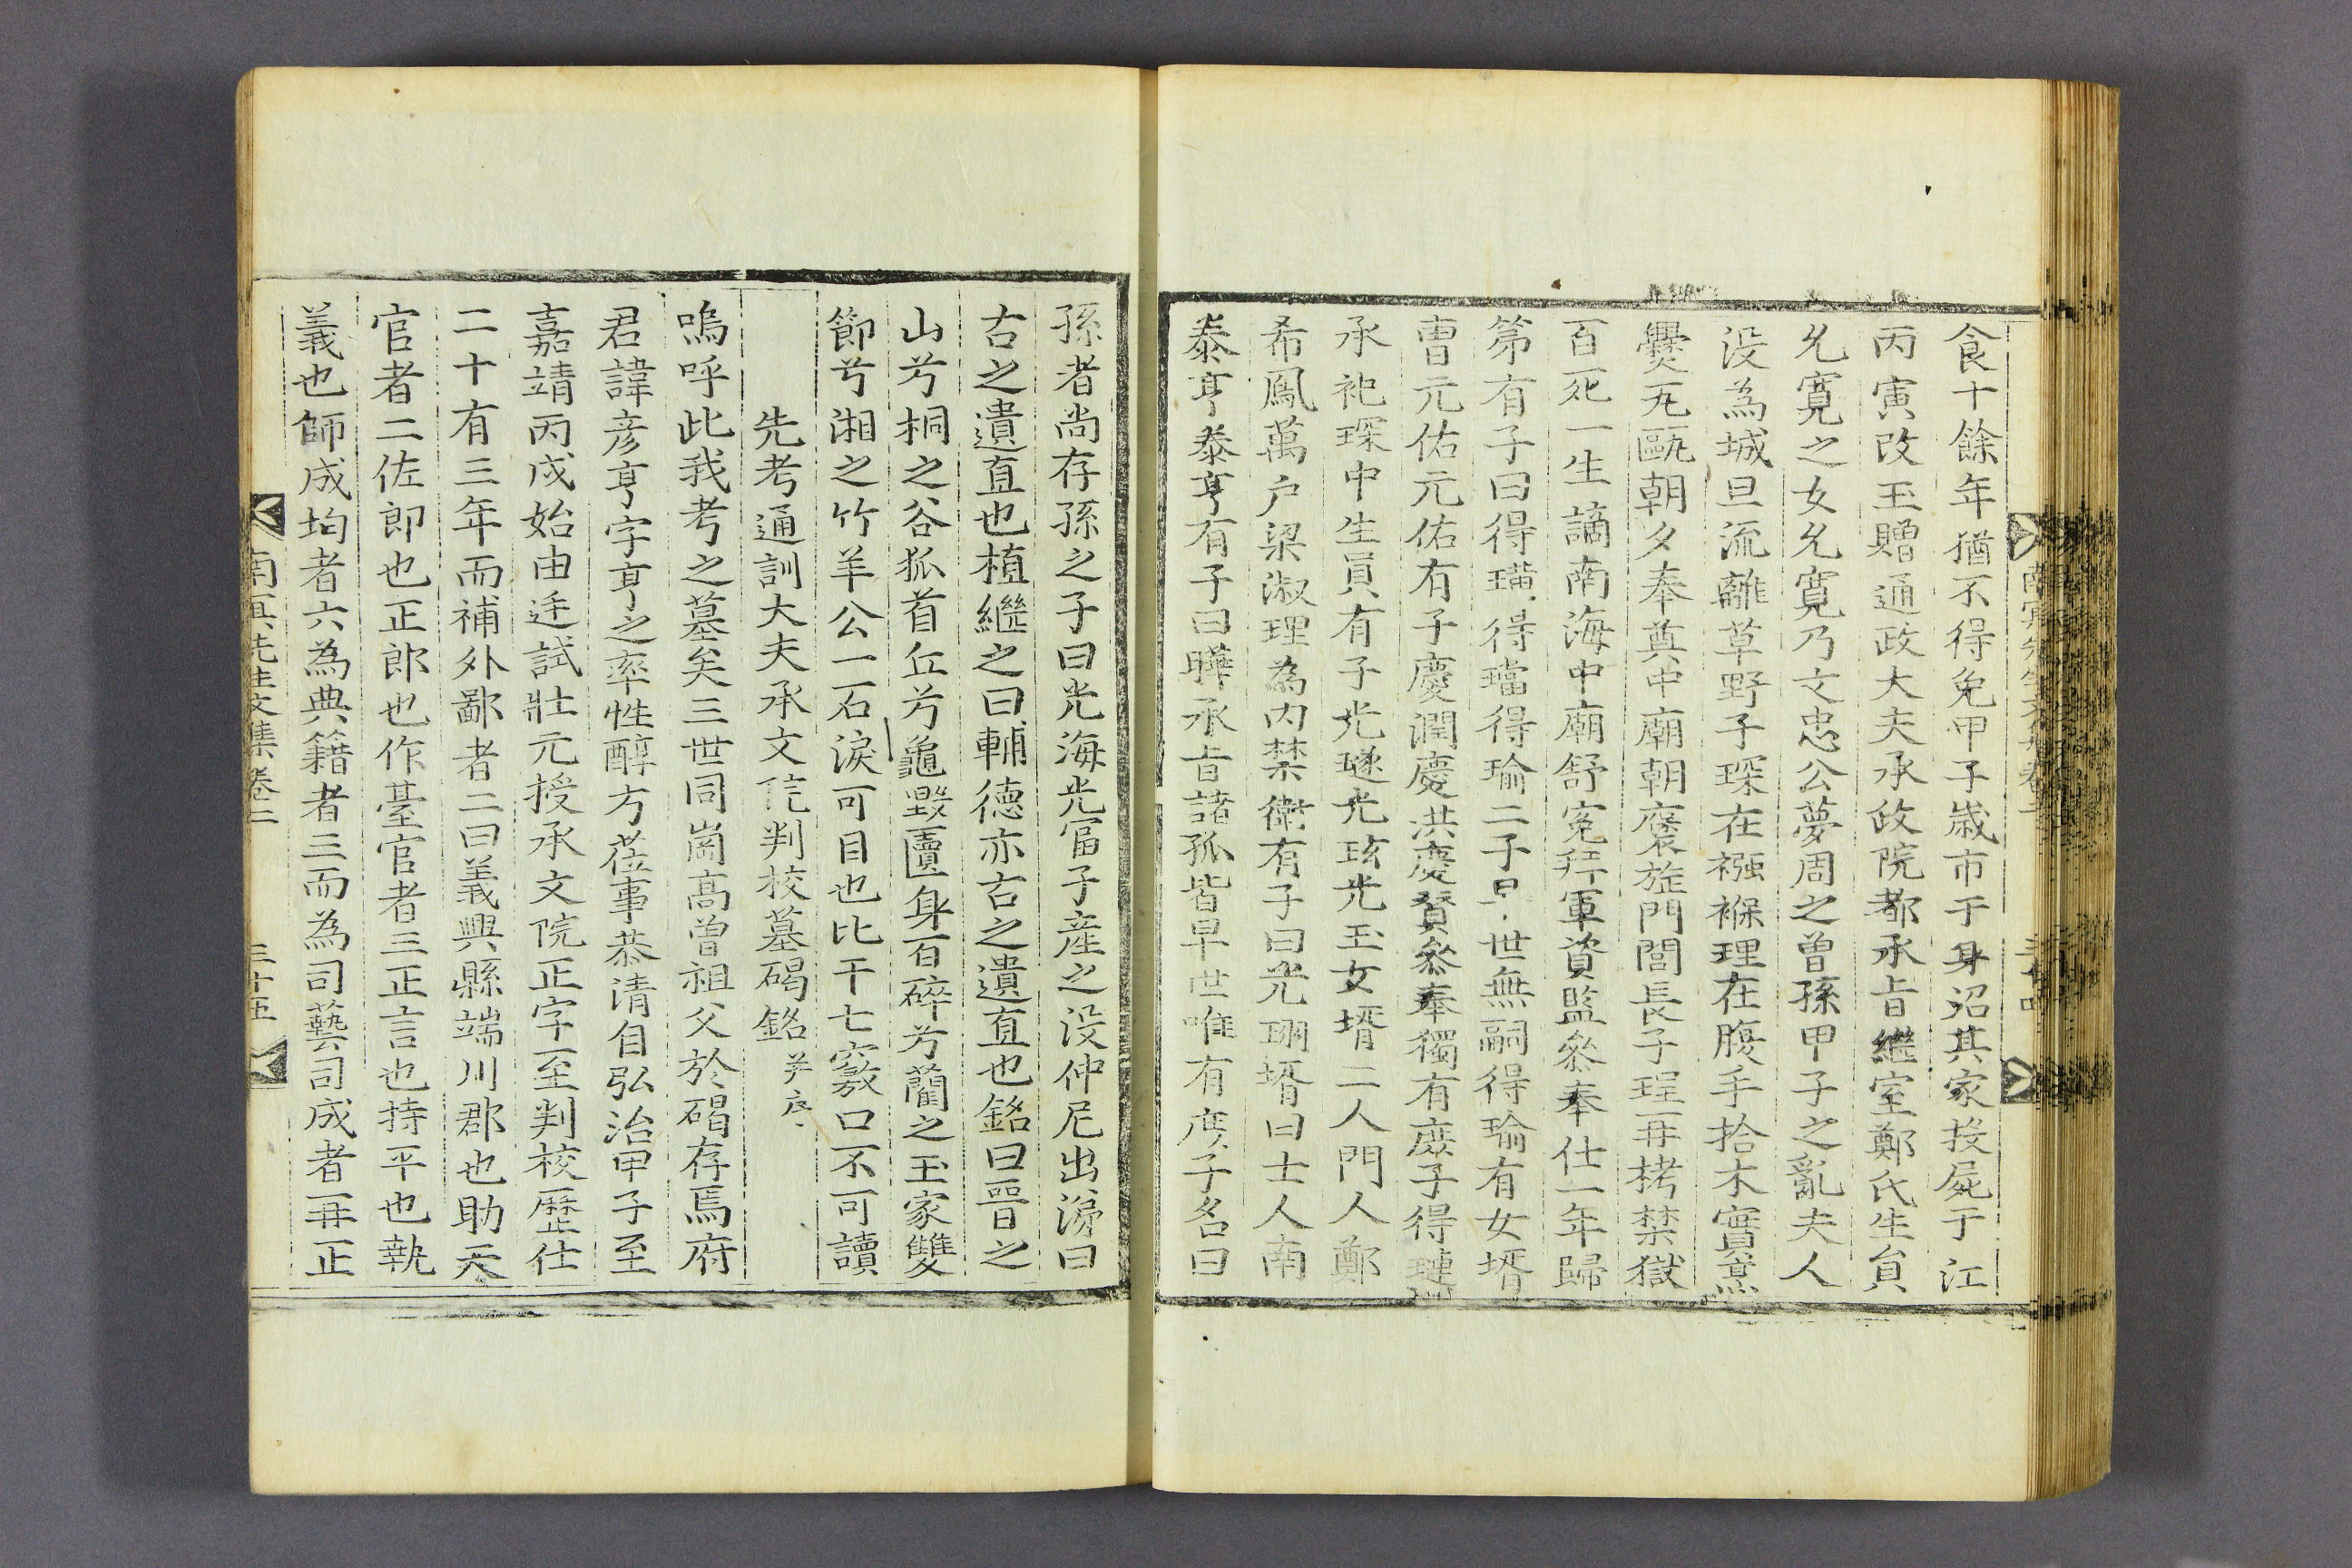 食十餘年猶不得免甲子歲市于身沼其家投屍于江
丙寅改玉贈通政大夫承政院都承旨繼室鄭氏生貟
允寬之女允寬乃文忠公夢周之曾孫甲子之亂夫人
沒為城旦流離草野子琛在襁褓理在腹手拾木實熹
爨瓦甌朝夕奉奠中廟朝褒旌門閭長子珵再栲禁獄
百死一生謫南海中廟舒寃拜軍資監叅奉仕一年歸
第有子曰得璜得璫得瑜二子早世無嗣得瑜有女壻
曺元佑元佑有子慶潤慶洪慶贇叅奉獨有庶子得璉
承祀琛中生員有子光璲光玹光玉女壻二人門人鄭
希鳳萬户梁淑理為内禁衛有子曰光瑚壻曰士人南
泰亨泰亨有子曰曄承旨諸孤皆早世唯有庶子名曰
孫者尚存孫之子曰光海光富子産之沒仲尼出涕曰
古之遺直也植繼之曰輔德亦古之遺直也銘曰晉之
山兮桐之谷狐首丘兮龜毀匵身百碎兮藺之玉家雙
節兮湘之竹羊公一石淚可目也比干七竅口不可讀
先考通訓大夫承文院判校墓碣銘 并序
嗚呼此我考之墓矣三世同崗高曾祖父於碣存焉府
君諱彦亨字亨之率性醇方莅事恭清自弘治甲子至
嘉靖丙戌始由廷試壯元授承文院正字至判校歷仕
二十有三年而補外鄙者二曰義興縣端川郡也助天
官者二佐郎也正郎也作臺官者三正言也持平也執
義也師成均者六為典籍者三而為司藝司成者再正
南冥先生文集卷二 三十五